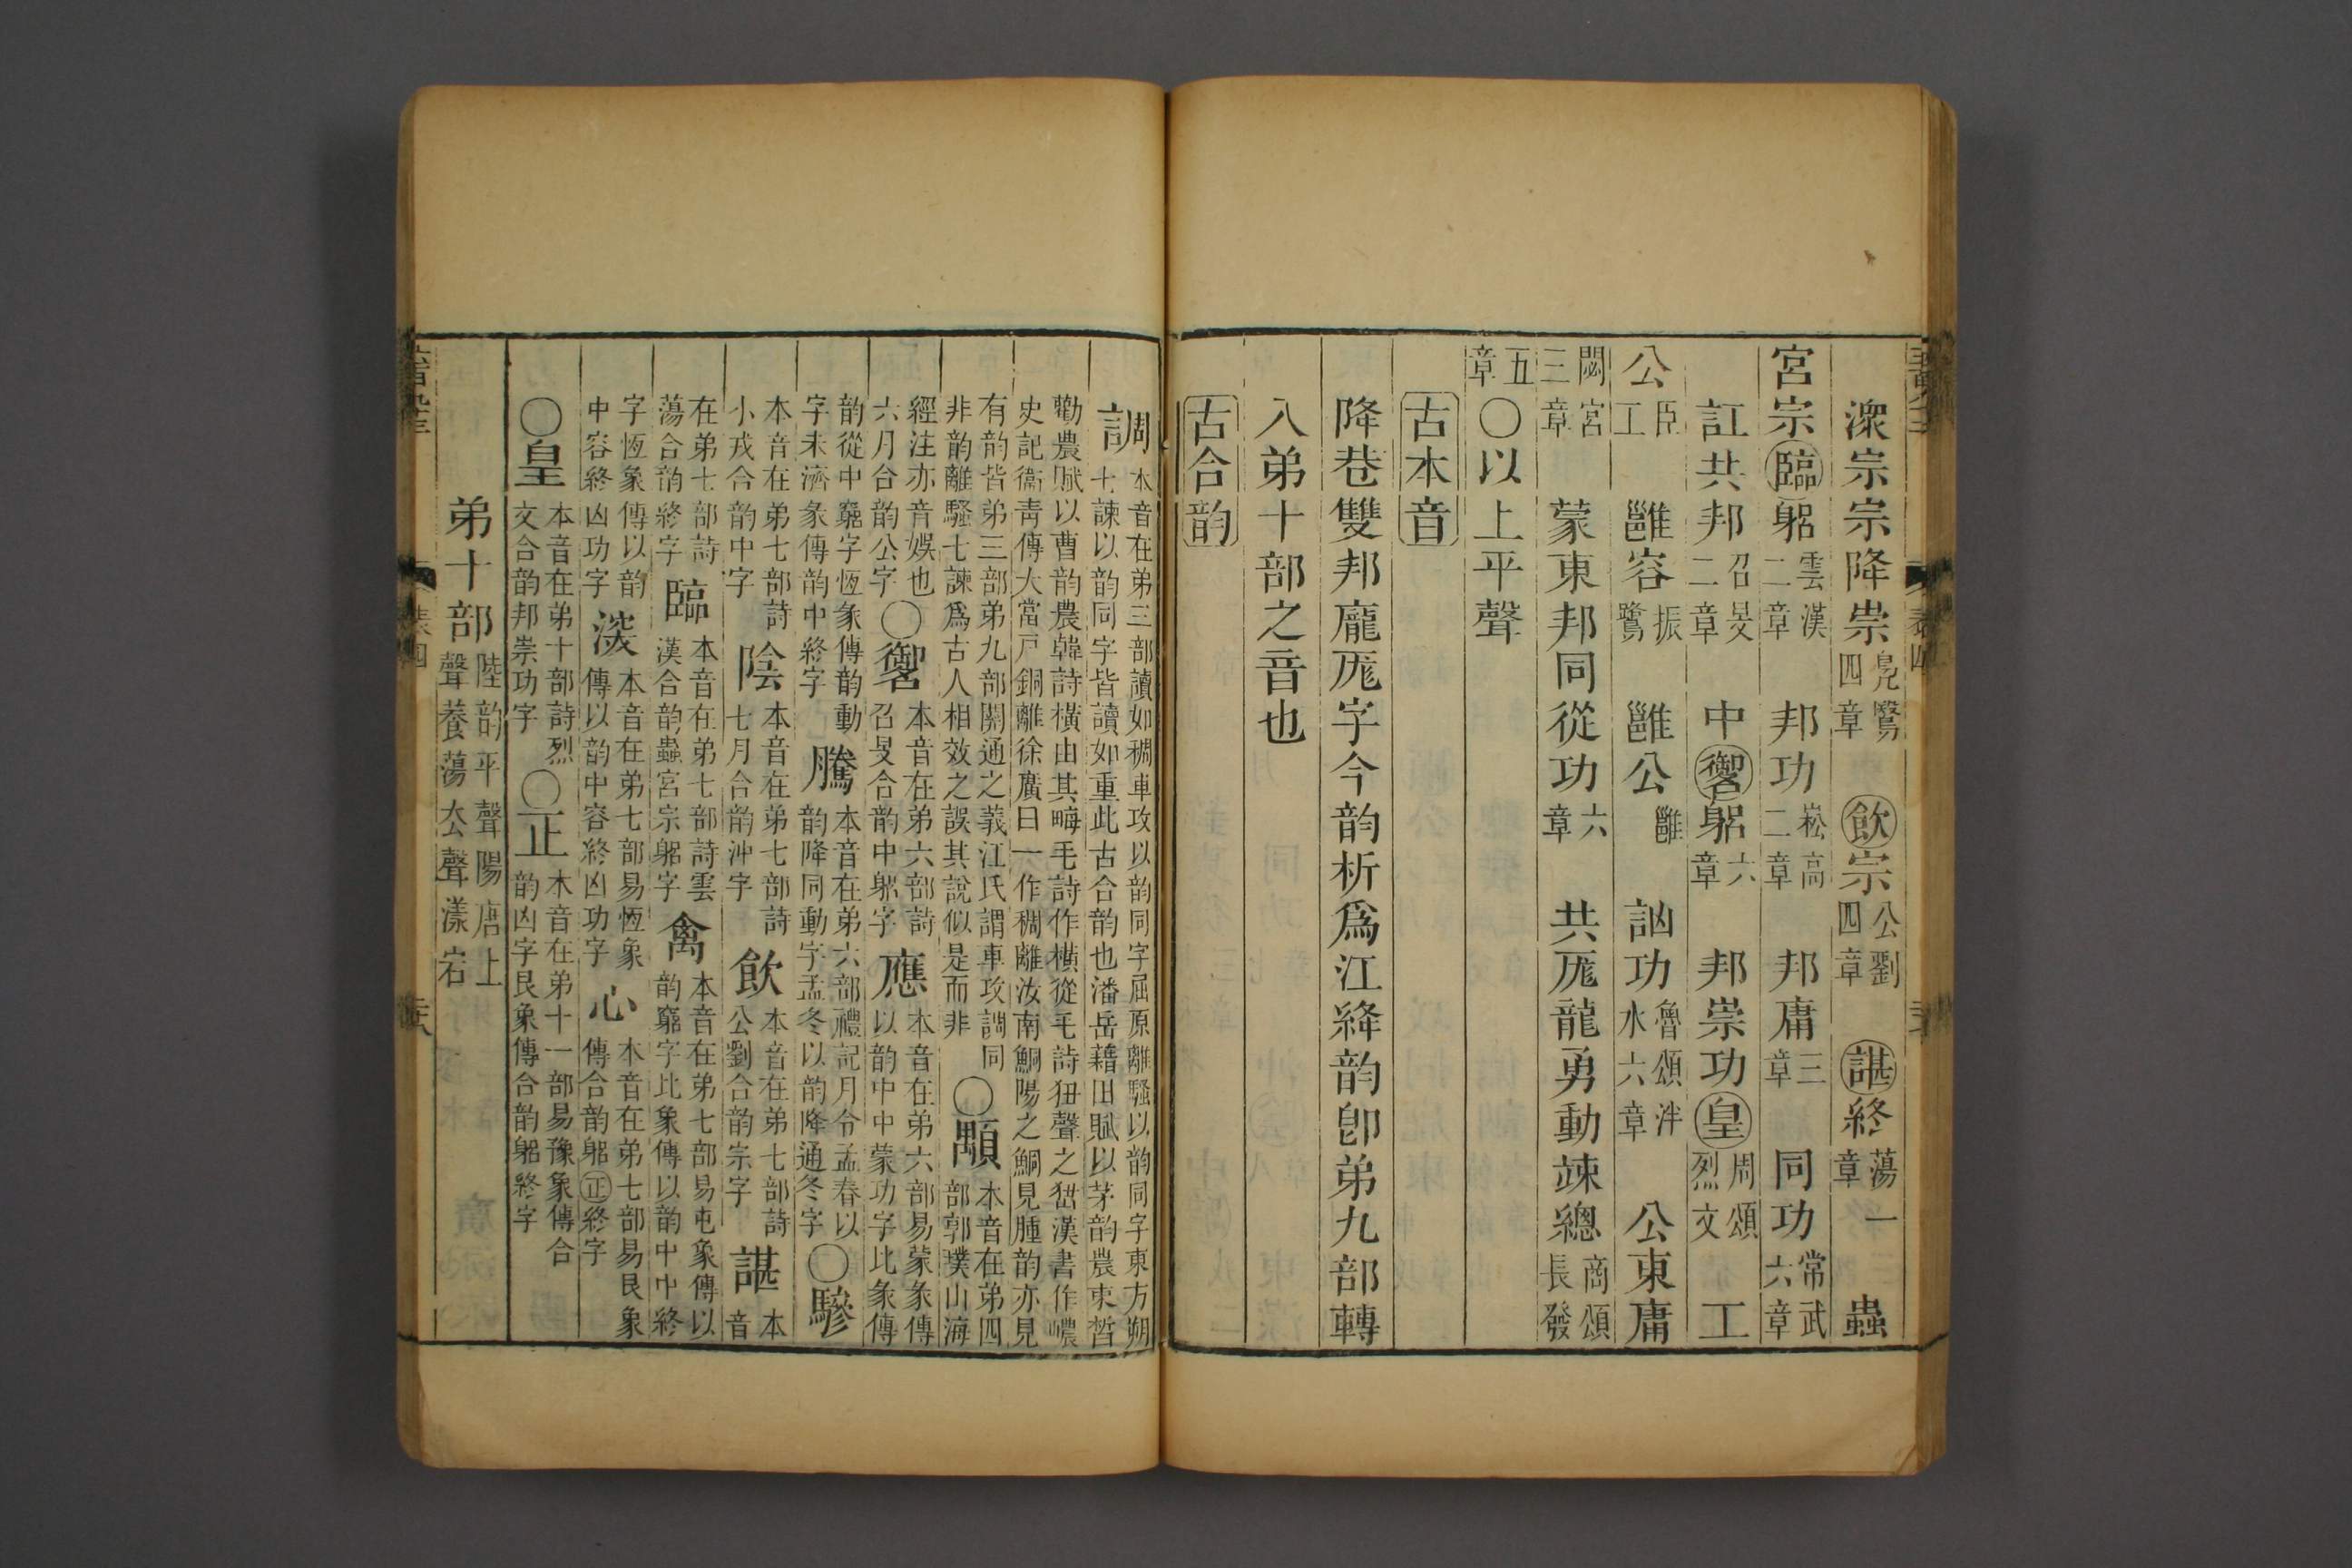 潨宗宗降崇鳧鷖四章 飲宗公劉四章 諶終蕩一章 蟲
宮宗臨躳雲漢二章 邦功崧高二章 邦庸三章 同功常武六章
訌共邦召旻二章 中𧬨躳六章 邦崇功皇周頌烈文 工
公臣工 雝容振鷺 雝公雝 訩功魯頌泮水六章 公東庸
閟宮三章 蒙東邦同從功六章 共厖龍勇動竦總商頌長發
五章○以上平聲
古本音
降巷雙邦龐厖字今韵析爲江絳韵卽弟九部轉
入弟十部之音也
古合韵
調本音在弟三部讀如稠車攻以韵同字屈原離騷以韵同字東方朔七諫以韵同字皆讀如重此古合韵也潘岳藉田賦以茅韵農束晳
勸農賦以曹韵農韓詩橫由其畮毛詩作橫從毛詩狃聲之猫漢書作巎史記衞靑傳大當戸銅離徐廣曰一作稠離汝南鮦陽之鮦見腫韵亦見
有韵皆弟三部弟九部關通之義江氏謂車攻調同非韵離騷七諫爲古人相效之誤其說似是而非○顒本音在弟四部郭璞山海
經注亦音娛也六月合韵公字○𧬨本音在弟六部詩召旻合韵中躳字應本音在弟六部易蒙彖傳以韵中中蒙功字比彖傳
韵從中竆字恆彖傳韵動字未濟彖傳韵中終字騰本音在弟六部禮記月令孟春以韵降同動字孟冬以韵降通冬字○驂
本音在弟七部詩小戎合韵中字陰本音在弟七部詩七月合韵沖字飲本音在弟七部詩公劉合韵宗字諶本音
在弟七部詩蕩合韵終字臨本音在弟七部詩雲漢合韵蟲宮宗躳字禽本音在弟七部易屯象傳以韵竆字比象傳以韵中中終
字恆象傳以韵中容終凶功字深本音在弟七部易恆象傳以韵中容終凶功字心本音在弟七部易艮象傳合韵躳正終字
○皇本音在弟十部詩烈文合韵邦崇功字○正本音在弟十一部易豫象傳合韵凶字艮象傳合韵躳終字
弟十部陸韵平聲陽唐上聲養蕩去聲漾宕